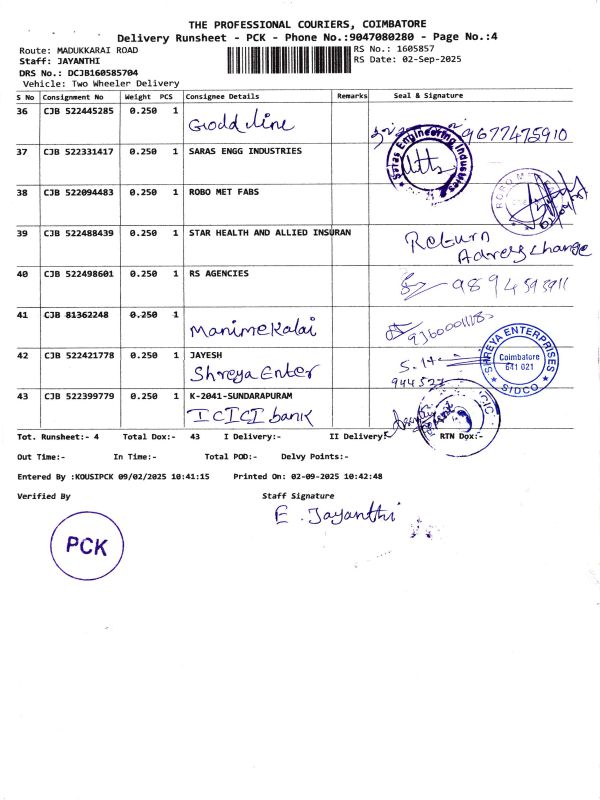 THE PROFESSIONAL COURIERS, COIMBATORE
Delivery Runsheet - PCK - Phone No.:9047080280 - Page No.:4
Route: MADUKKARAI ROAD RS No.: 1605857
Staff: JAYANTHI RS Date: 02-Sep-2025
DRS No.: DCJB160585704
Vehicle: Two Wheeler Delivery
S No Consignment No Weight PCS Consignee Details Remarks Seal & Signature
36 CJB 522445285 0.250 1
9677475910
37 CJB 522331417 0.250 1 SARAS ENGG INDUSTRIES
Saras Engineering Industries
38 CJB 522094483 0.250 1 ROBO MET FABS
ROBO MET
39 CJB 522488439 0.250 1 STAR HEALTH AND ALLIED INSURAN
Return
Adress change
40 CJB 522498601 0.250 1 RS AGENCIES
9894593911
41 CJB 81362248 0.250 1
Manimekalai
42 CJB 522421778 0.250 1 JAYESH
Shreya Enter
SHREYA ENTERPRISES
Coimbatore
641 021
SIDCO
43 CJB 522399779 0.250 1 K-2041-SUNDARAPURAM
ICICI bank
Tot. Runsheet:- 4 Total Dox:- 43 I Delivery:- II Delivery: RTN Dox:-
Out Time:- In Time:- Total POD:- Delvy Points:-
Entered By :KOUSIPCK 09/02/2025 10:41:15 Printed On: 02-09-2025 10:42:48
Verified By Staff Signature
E. Jayanthi
PCK